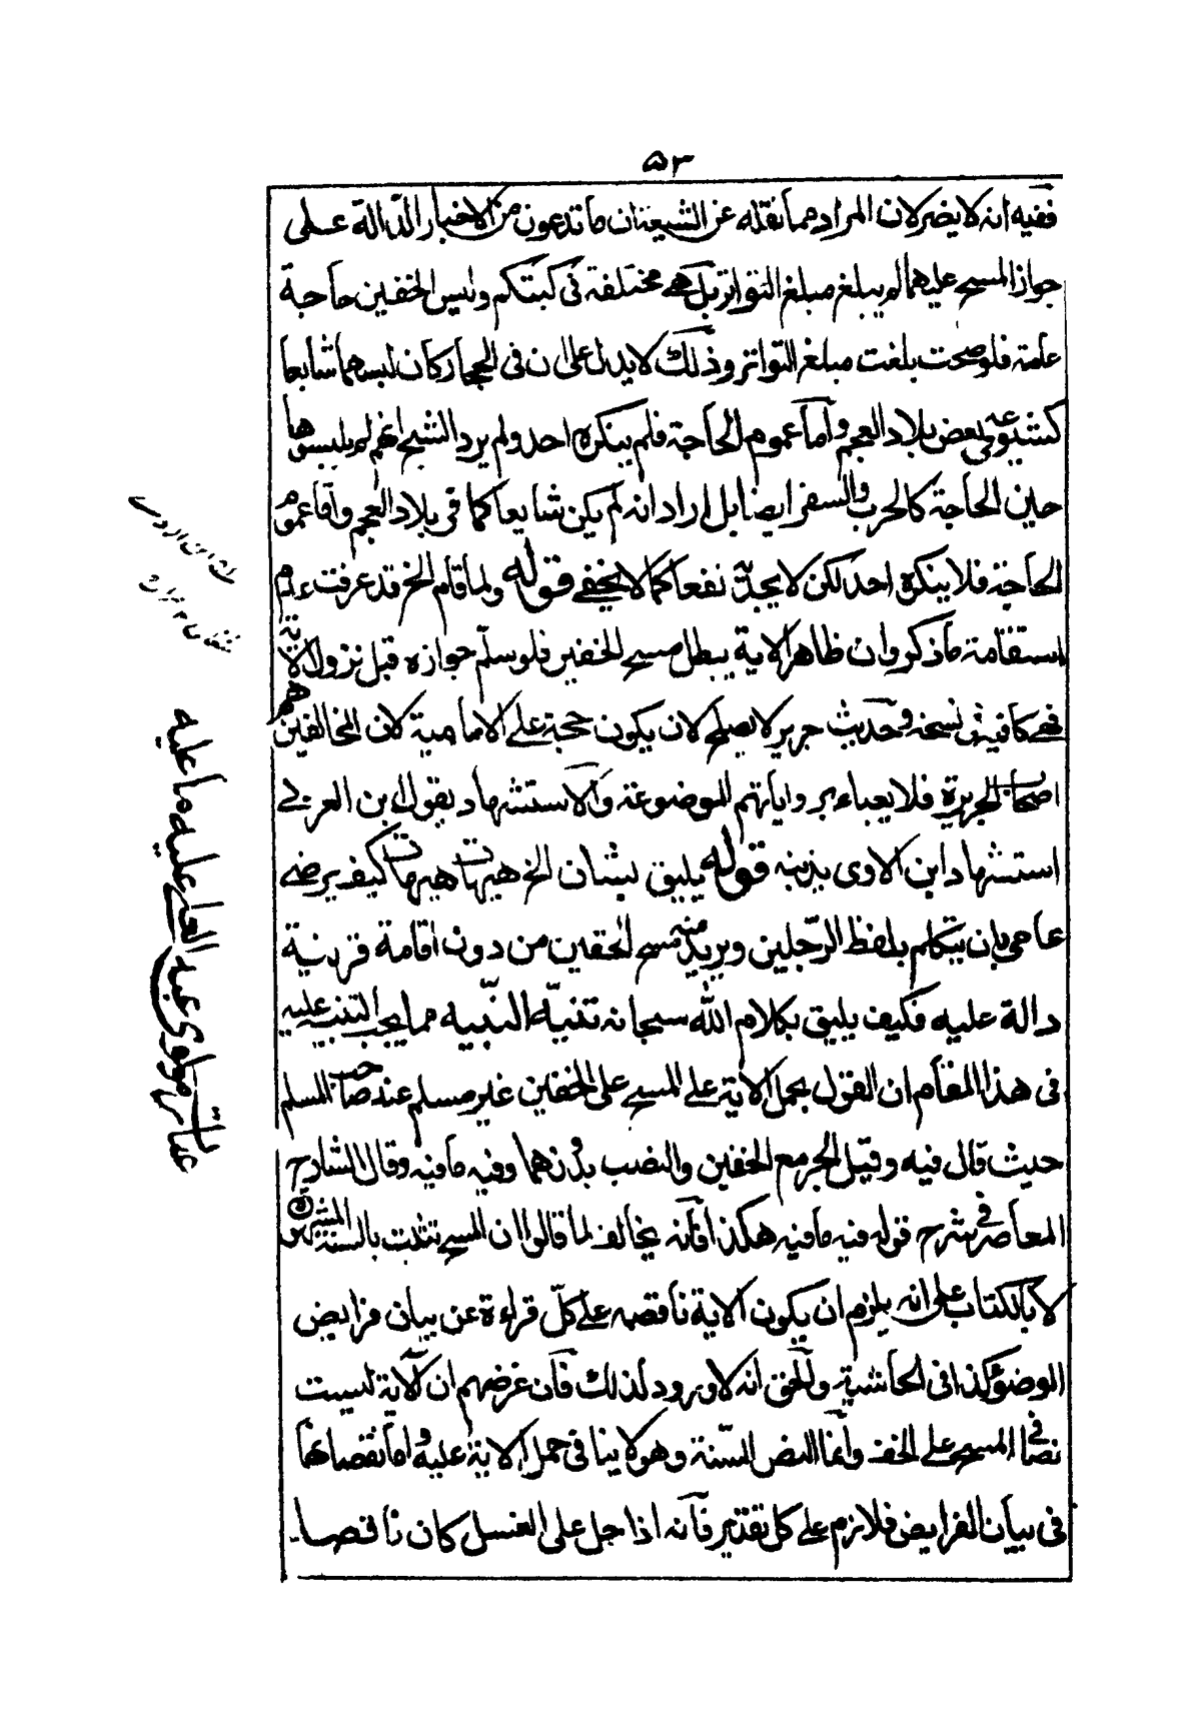 ٥٣
ففيه انه لا يضر لان المراد مما نقله عن الشيعة ان ما تدعون من الاخبار الدالة على
جواز المسح عليهما لم يبلغ مبلغ التواتر بل هي مختلفة في كتبكم وليس الخفين حاجة
عامة فلو صحت بلغت مبلغ التواتر وذلك لا يدل على ان في الحجاز كان لبسهما شايعا
كشيوعه في بعض بلاد العجم واما عموم الحاجة فلم ينكره احد ولم يرد الشيخ انهم لم يلبسوها
حين الحاجة كالحرب والسفر ايضا بل اراد انه لم يكن شايعا كما في بلاد العجم واما عموم
الحاجة فلا ينكره احد لكن لا يجدي نفعا كما لا يخفى قوله ولما قام الخ قد عرفت عدم
استقامة ما ذكر وان ظاهر الاية يبطل مسح الخفين فلو سلم جوازه قبل نزول الاية
فهي كافية في نسخه وحديث جرير لا يصلح لان يكون حجة على الامامية لان المخالفين هم
اصحاب الجريرة فلا يعباء بروايانهم الموضوعة والاستشهاد بقول ابن العربي
استشهاد ابن الاوى بذنبه قوله يليق بشان الخ هيهات هيهات كيف يرضى
عامي بان يتكلم بلفظ الرجلين ويريد منه مسح الخفين من دون اقامة قرينة
دالة عليه فكيف يليق بكلام الله سبحانه تنبيه النبيه مما يجب التنبه عليه
في هذا المقام ان القول بحمل الاية على المسح على الخفين غير مسلم عند صاحب المسلم
حيث قال فيه وقيل الجر مع الخفين والنصب بدونهما وفيه ما فيه وقال الشارح
المعاصر في شرح قوله فيه ما فيه هكذا فانه يخالف لما قالوا ان المسح تثبت بالسنة المشهورة
لا بالكتاب على انه يلزم ان يكون الاية ناقصه على كل قراءة عن بيان فرايض
الوضوء كذا في الحاشية والحق انه لا ورود لذلك فان غرضهم ان الاية ليست
نصا في المسح على الخف وانما النص السنة وهو لا ينافي حمل الاية عليه واما نقصانها
في بيان الفرايض فلازم على كل تقدير فانه اذا حمل على الغسل كان ناقصا
مولوى عبد العلى عليه ما عليه